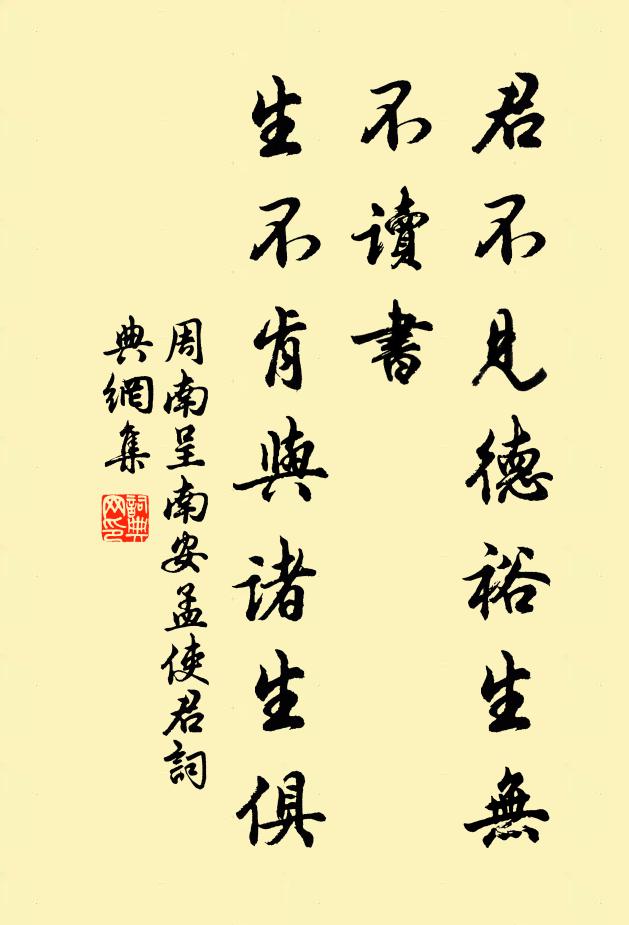 君不見德裕生無
不讀書
生不肯與諸生俱
周南呈南安孟使君詞
典網集
詞典網印